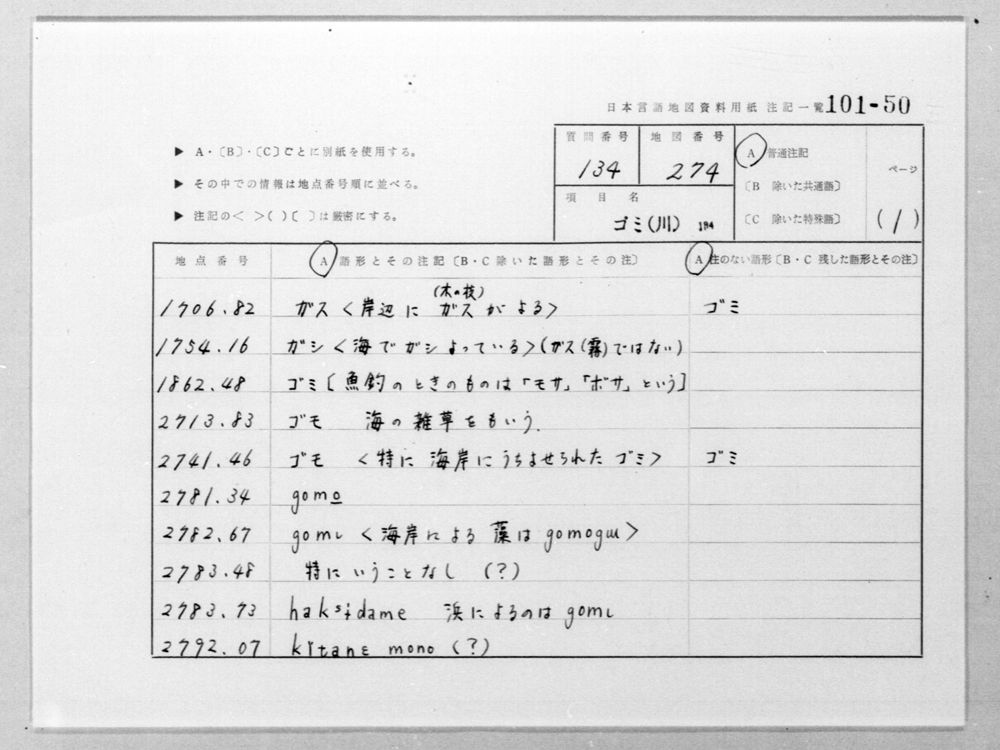 日本言語地図資料用紙 注記一覧 101-50
▶ A・〔B〕・〔C〕ごとに別紙を使用する。
▶ その中での情報は地点番号順に並べる。
▶ 注記の< >( )〔 〕は厳密にする。
質問番号 地図番号
134 274
項目名
ゴミ(川) 194
A 普通注記
〔B 除いた共通語〕
〔C 除いた特殊語〕
ページ
(1)
地点番号 A 語形とその注記〔B・C除いた語形とその注〕 A 注のない語形〔B・C 残した語形とその注〕
(木の枝)
1706.82 ガス<岸辺に ガスが よる> ゴミ
1754.16 ガシ<海でガシよっている>(ガス(霧)ではない)
1862.48 ゴミ[魚釣のときのものは「モサ」「ボサ」という]
2713.83 ゴモ 海の雑草をもいう.
2741.46 ゴモ <特に 海岸にうちよせられた ゴミ> ゴミ
2781.34 gomo
2782.67 gomɩ <海岸による 藻は gomogɯ>
2783.48 特に いうことなし (?)
2783.73 haksɨdame 浜によるのは gomɩ
2792.07 kïtanɛ mono (?)